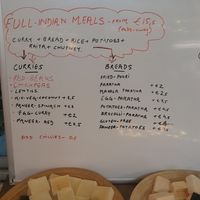 FULL-INDIAN MEALS - FROM €15,5
CURRY + BREAD + RICE + POTATOES +
RAITA + CHUTNEY
CURRIES
- RED BEANS
- CHICKPEAS
- LENTILS
+ €.5
- PANEER-SPINACH + €3
- EGG-CURRY + €2
- PANEER-RED + €3.5
ADD CHILLIES -
BREADS
FRIED-PURI
PARATHA + €2
MASALA PARATHA + €2.5
EGG-PARATHA + €3.5
POTATOES-PARATHA + €3.5
BROCOLLI-PARATHA + €3.5
GLUTEN-FREE
PANEER-POTATOES